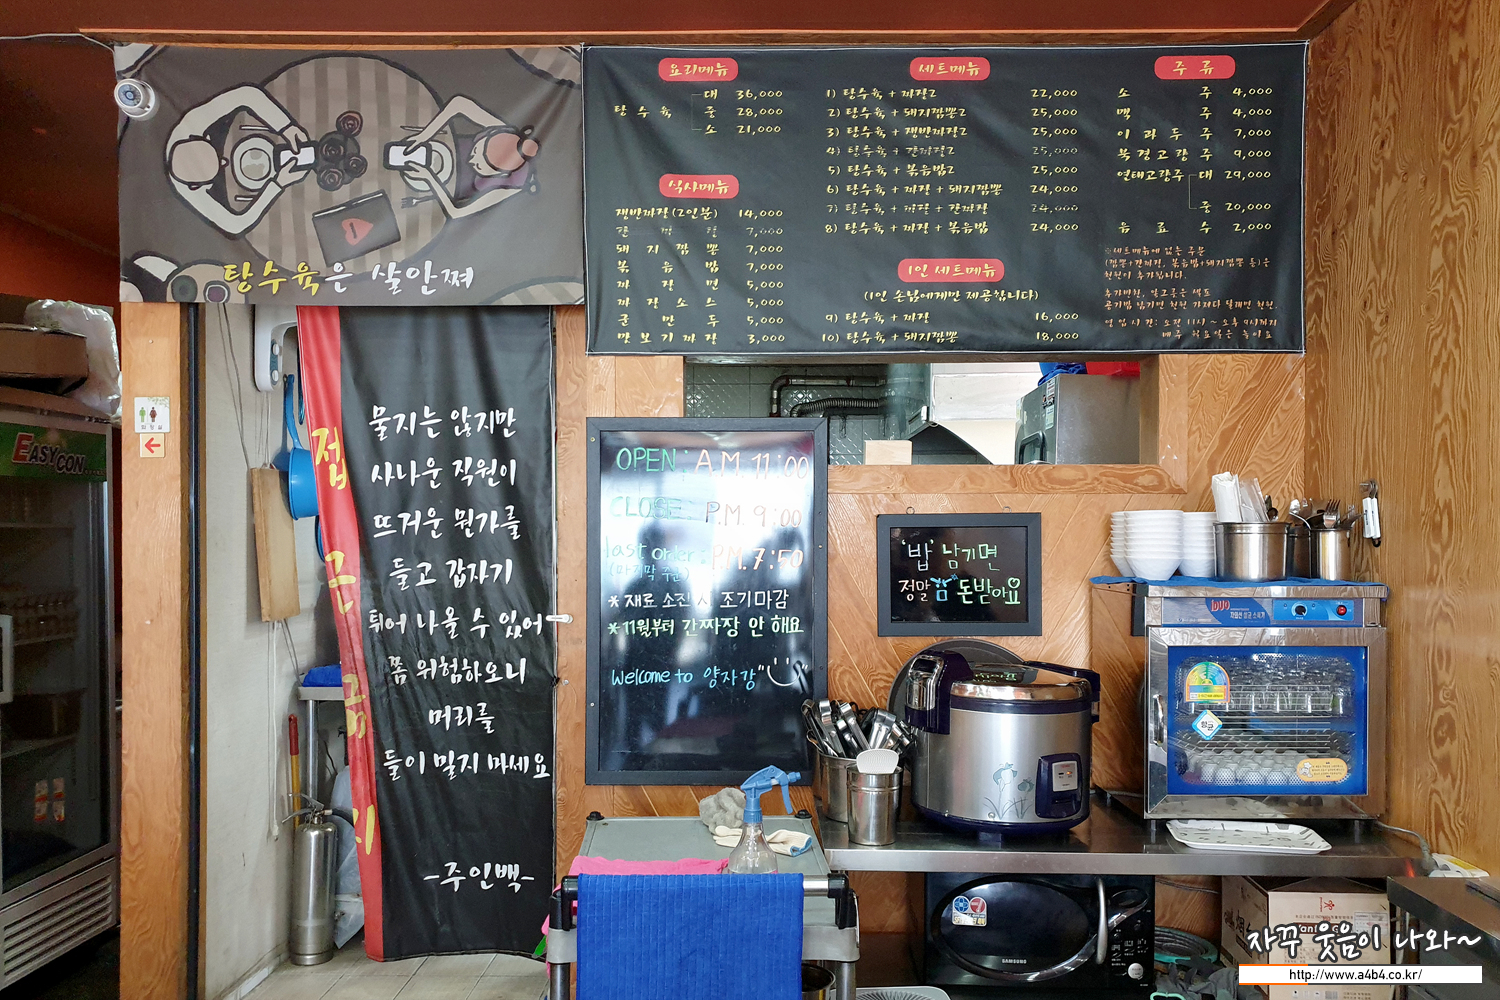 탕수육은 살안쪄
요리메뉴
탕수육
대 36,000
중 28,000
소 21,000
식사메뉴
쟁반짜장(2인분) 14,000
7,000
돼지짬뽕 7,000
볶음밥 7,000
짜장면 5,000
짜장소스 5,000
군만두 5,000
맛보기짜장 3,000
세트메뉴
1) 탕수육 + 짜장2 22,000
2) 탕수육 + 돼지짬뽕2 25,000
3) 탕수육 + 쟁반짜장2 25,000
4) 탕수육 + 간짜장2 25,000
5) 탕수육 + 볶음밥2 25,000
6) 탕수육 + 짜장 + 돼지짬뽕 24,000
7) 탕수육 + 짜장 + 간짜장 24,000
8) 탕수육 + 짜장 + 볶음밥 24,000
1인 세트메뉴
(1인 손님에게만 제공합니다)
9) 탕수육 + 짜장 16,000
10) 탕수육 + 돼지짬뽕 18,000
주 류
소주 4,000
맥주 4,000
이과두주 7,000
북경고량주 9,000
연태고량주 대 29,000
중 20,000
음료수 2,000
※세트메뉴에 없는 주문
(짬뽕+간짜장, 볶음밥+돼지짬뽕 등)은
천원이 추가됩니다.
영업시간: 오전 11시 ~ 오후 9시까지
매주 화요일은 놀아요
접근금지
물지는 않지만
사나운 직원이
뜨거운 뭔가를
들고 갑자기
튀어 나올 수 있어
쫌 위험하오니
머리를
들이 밀지 마세요
-주인백-
EASYCON
화장실
OPEN : A.M. 11:00
CLOSE : P.M. 9:00
last order : P.M. 7:50
(마지막 주문)
* 재료 소진 시 조기마감
* 11월부터 간짜장 안 해요
Welcome to 양자강
'밥' 남기면
정말 돈받아요
자외선 살균 소독기
SAMSUNG
자꾸 웃음이 나와~
http://www.a4b4.co.kr/